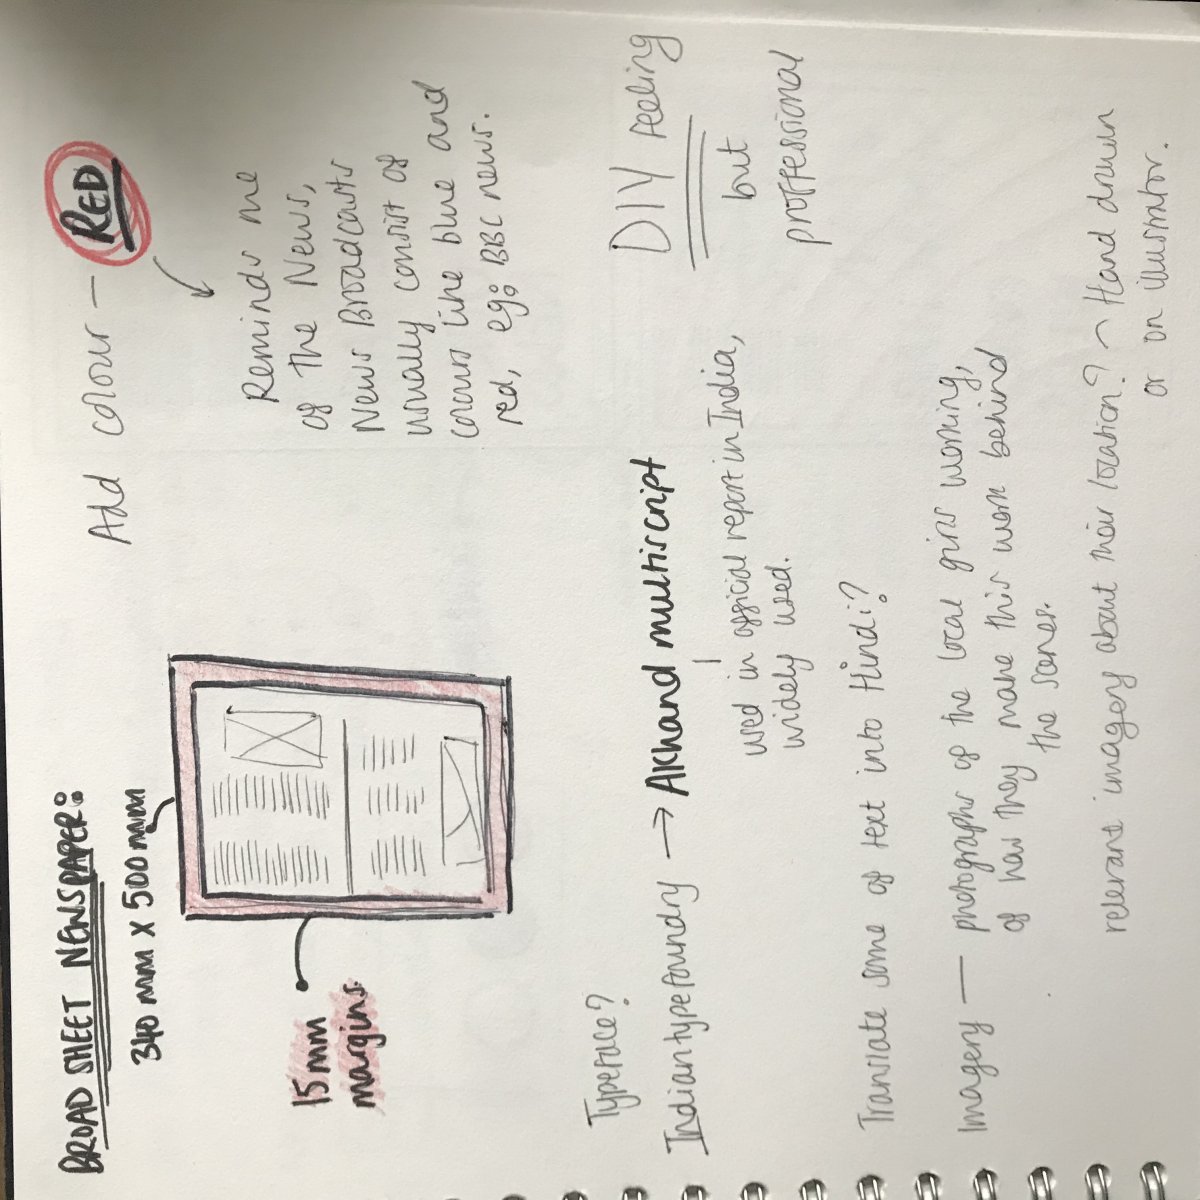 BROAD SHEET NEWSPAPER:
340 mm X 500 mm
15 mm
margins.
Add colour — RED
Reminds me
of the News,
News Broadcasts
usually consist of
colours like blue and
red, eg: BBC news.
Typeface?
Indian type foundry → Akhand multiscript
used in official report in India,
widely used.
DIY feeling
but
proffessional
Translate some of text into Hindi?
Imagery — photographs of the local girls working,
of how they make this work behind
the scenes.
relevant imagery about their location? ~ Hand drawn
or on illustrator.